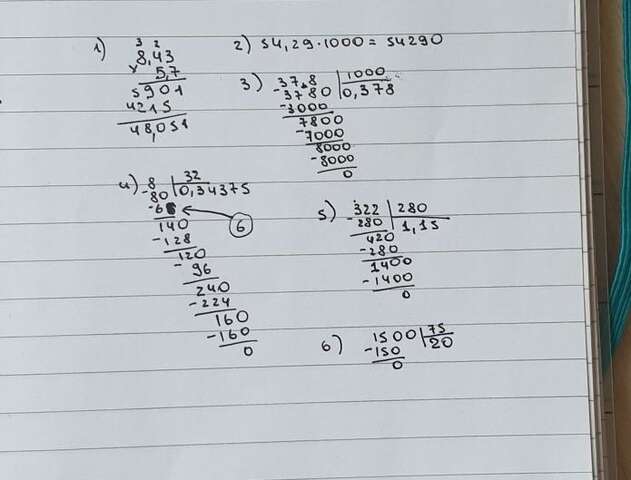 1) 3 2
8,43
x 5,7
5901
4215
48,051
2) 54,29·1000 = 54290
3) 37,8 | 1000
-3780 | 0,378
-3000
7800
-7000
8000
-8000
0
4) 8 | 32
-80 | 0,34375
-6
6
140
-128
120
- 96
240
-224
160
-160
0
5) 322 | 280
-280 | 1,15
420
-280
1400
-1400
0
6) 1500 | 75
-150 | 20
0